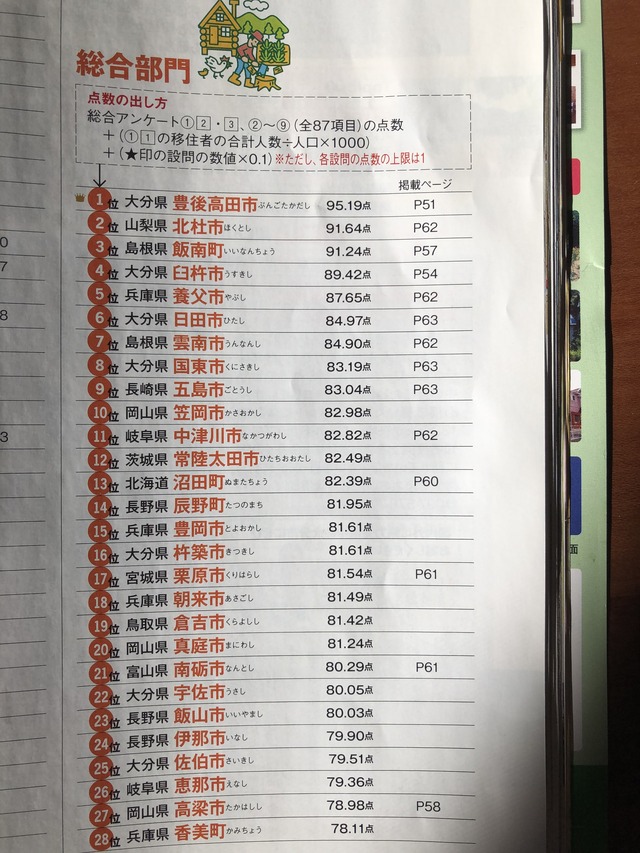 総合部門
点数の出し方
総合アンケート①2・3、②〜⑨(全87項目)の点数
+(①1の移住者の合計人数÷人口×1000)
+(★印の設問の数値×0.1)※ただし、各設問の点数の上限は1
掲載ページ
1位 大分県 豊後高田市 ぶんごたかだし 95.19点 P51
2位 山梨県 北杜市 ほくとし 91.64点 P62
3位 島根県 飯南町 いいなんちょう 91.24点 P57
4位 大分県 臼杵市 うすきし 89.42点 P54
5位 兵庫県 養父市 やぶし 87.65点 P62
6位 大分県 日田市 ひたし 84.97点 P63
7位 島根県 雲南市 うんなんし 84.90点 P62
8位 大分県 国東市 くにさきし 83.19点 P63
9位 長崎県 五島市 ごとうし 83.04点 P63
10位 岡山県 笠岡市 かさおかし 82.98点
11位 岐阜県 中津川市 なかつがわし 82.82点 P62
12位 茨城県 常陸太田市 ひたちおおたし 82.49点
13位 北海道 沼田町 ぬまたちょう 82.39点 P60
14位 長野県 辰野町 たつのまち 81.95点
15位 兵庫県 豊岡市 とよおかし 81.61点
16位 大分県 杵築市 きつきし 81.61点
17位 宮城県 栗原市 くりはらし 81.54点 P61
18位 兵庫県 朝来市 あさごし 81.49点
19位 鳥取県 倉吉市 くらよしし 81.42点
20位 岡山県 真庭市 まにわし 81.24点
21位 富山県 南砺市 なんとし 80.29点 P61
22位 大分県 宇佐市 うさし 80.05点
23位 長野県 飯山市 いいやまし 80.03点
24位 長野県 伊那市 いなし 79.90点
25位 大分県 佐伯市 さいきし 79.51点
26位 岐阜県 恵那市 えなし 79.36点
27位 岡山県 高梁市 たかはしし 78.98点 P58
28位 兵庫県 香美町 かみちょう 78.11点